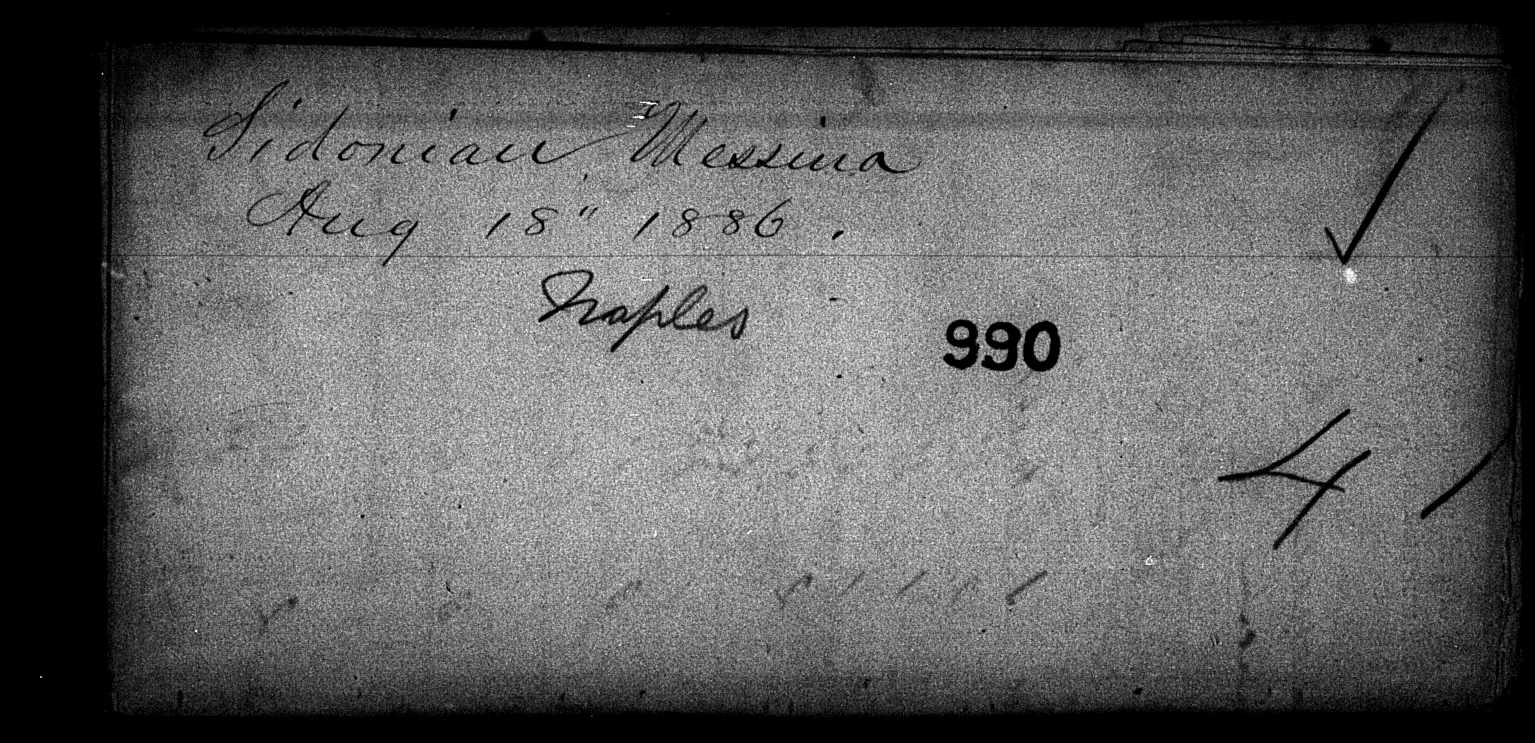 Sidonian Messina
Aug 18" 1886.
Naples
990
4 1